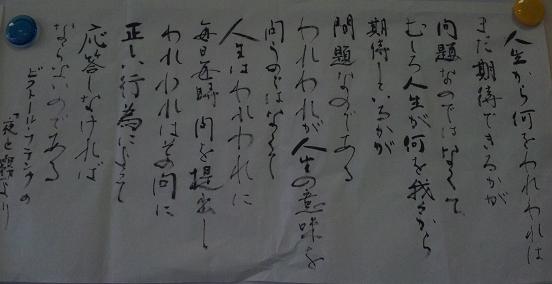 人生から何をわれわれは
まだ期待できるかが
問題なのではなくて
むしろ人生が何を我々から
期待しているかが
問題なのである
われわれが人生の意味を
問うのではなくて
人生はわれわれに
毎日毎時問を提出し
われわれはその問に
正しい行為によって
応答しなければ
ならないのである
ビクトール・フランクルの
「夜と霧」より